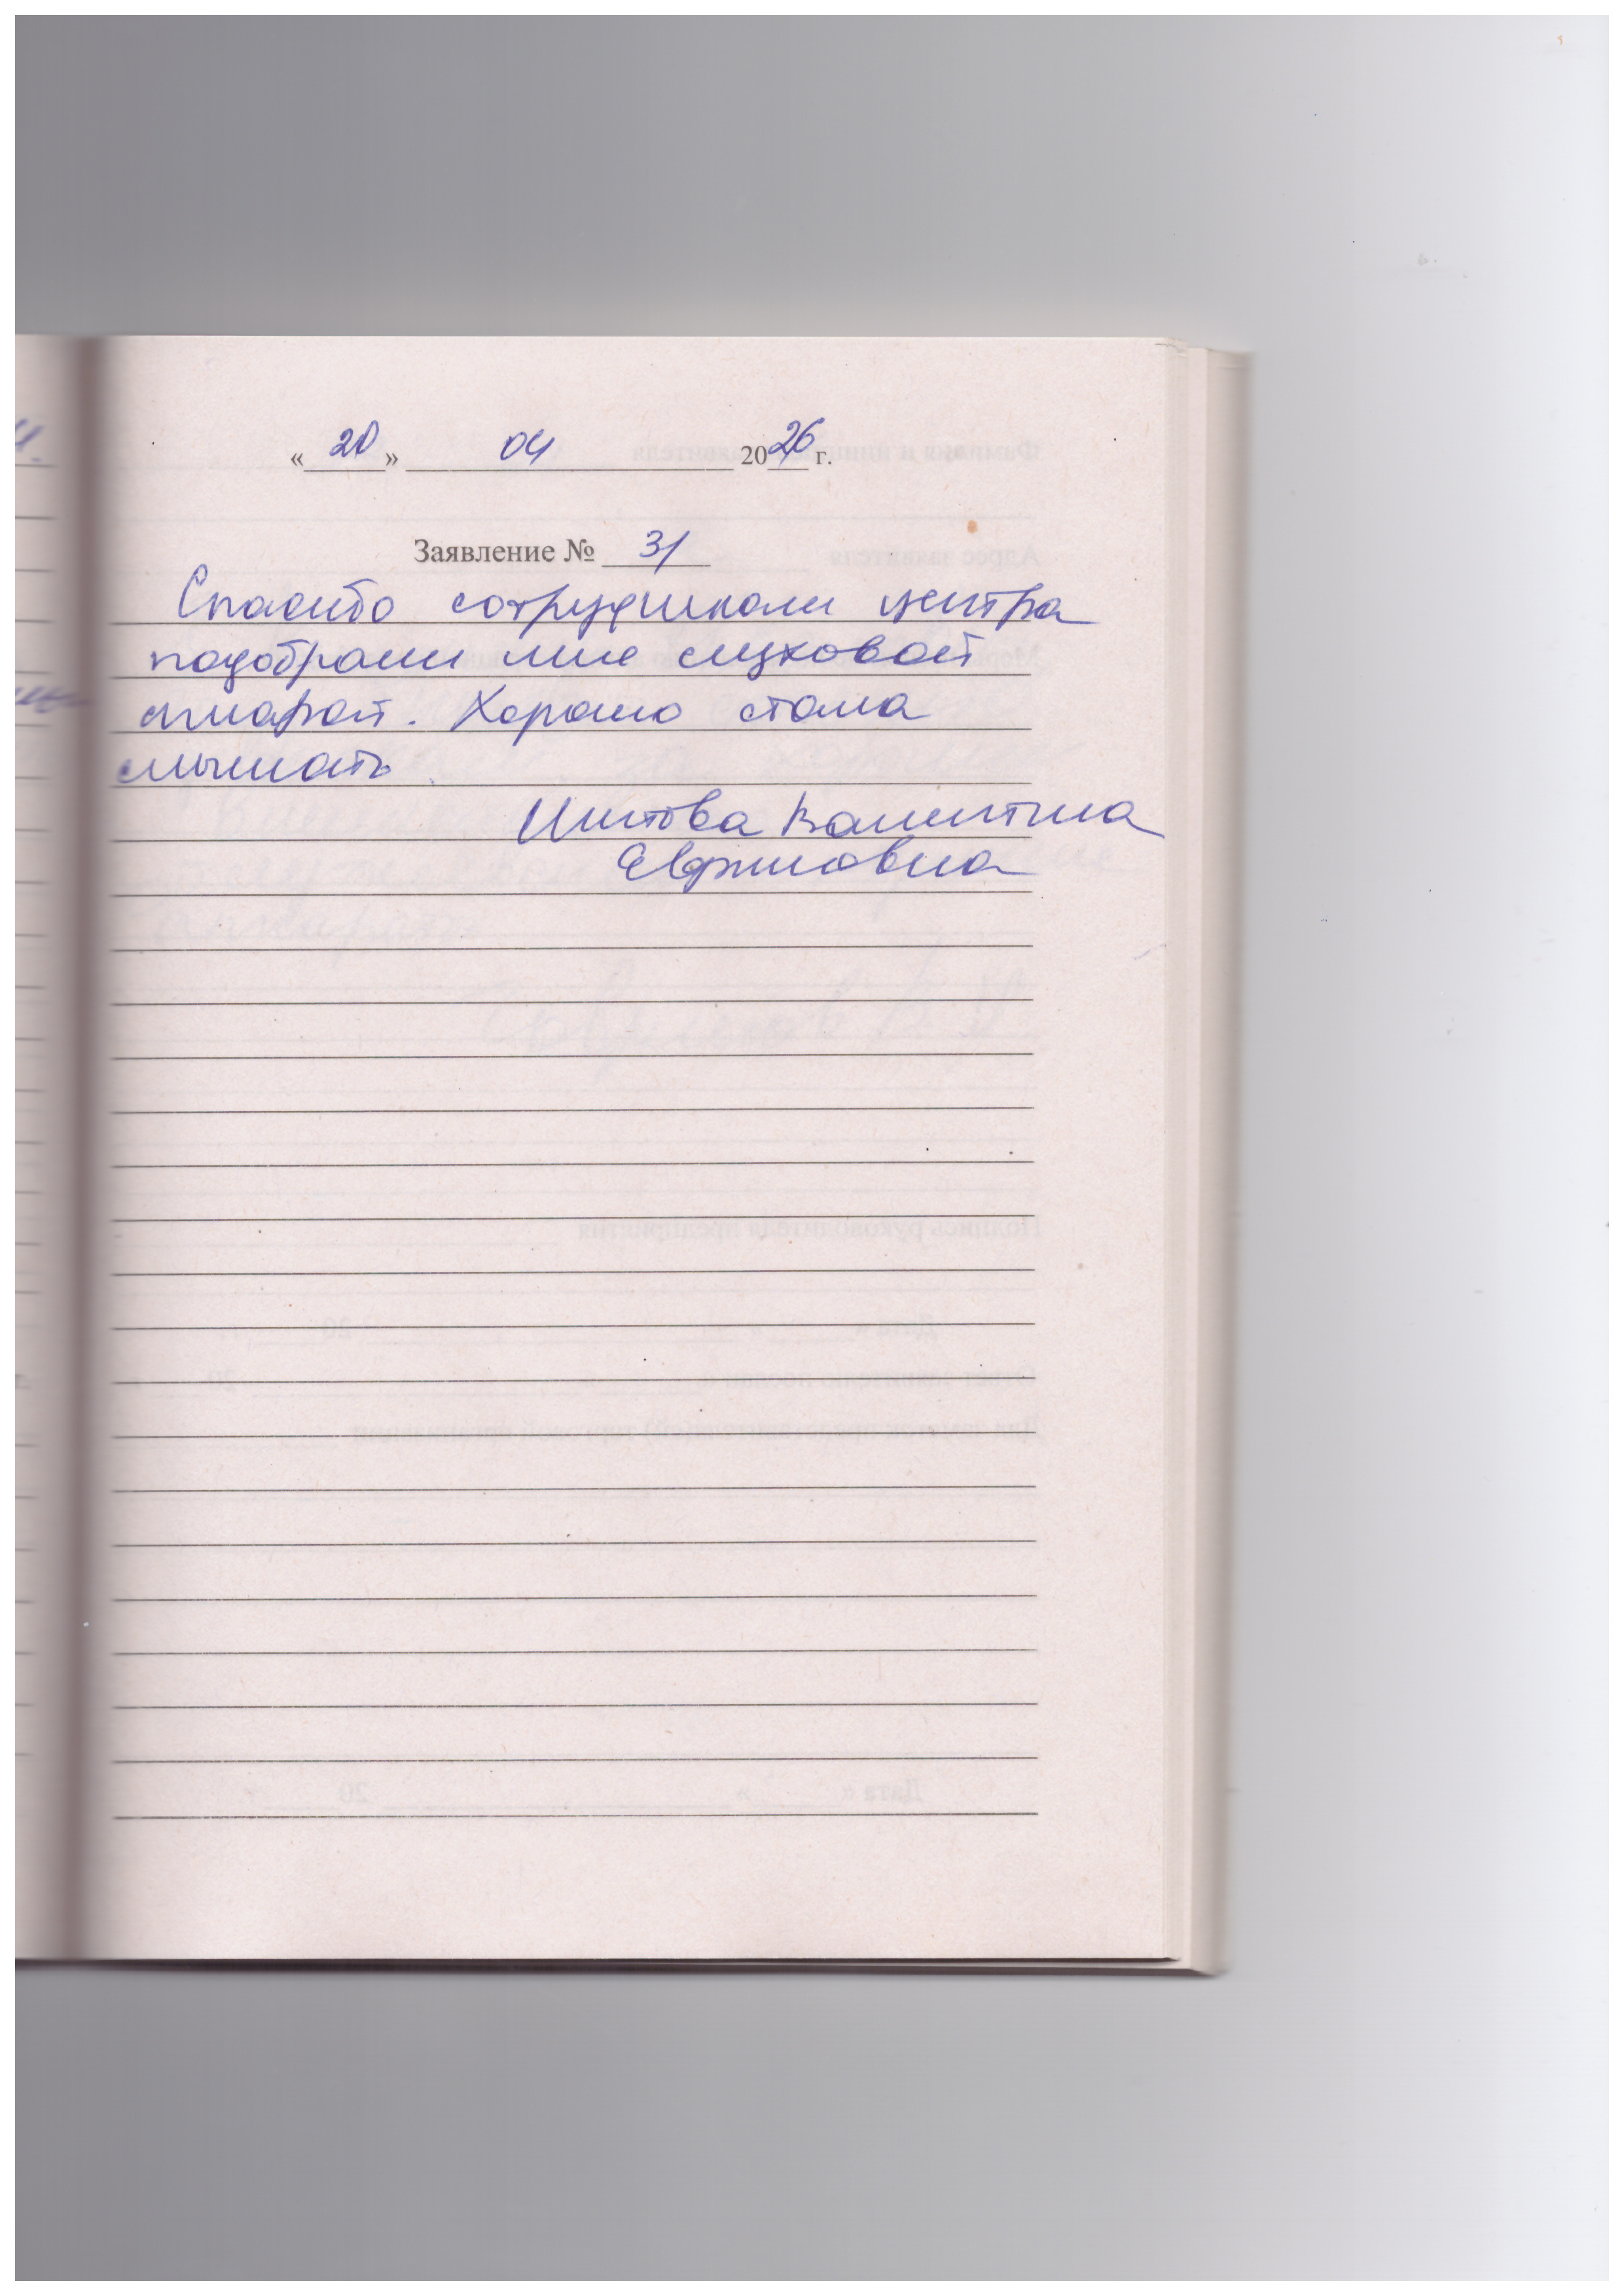 «20» 04 2026 г.
Заявление № 31
Спасибо сотрудникам центра
подобрали мне слуховой
аппарат. Хорошо стала
слышать
Валентина